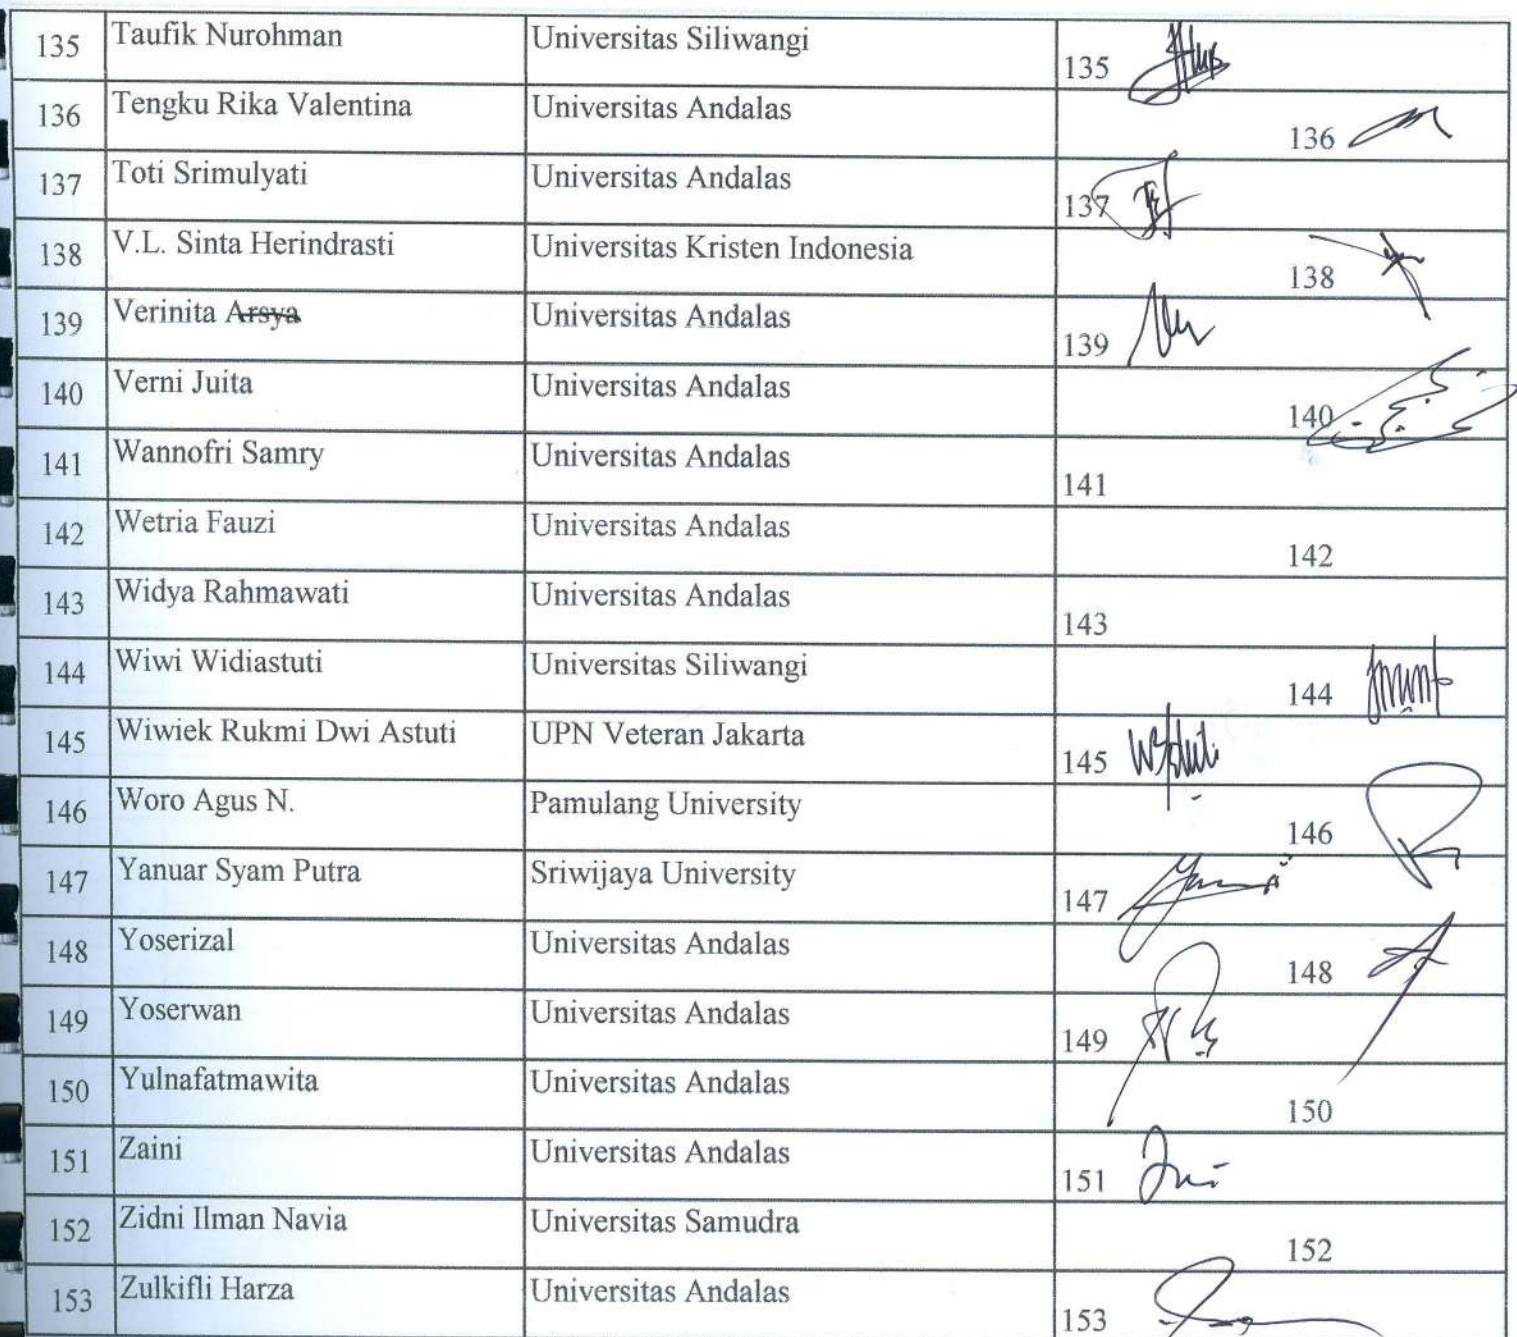 135 Taufik Nurohman Universitas Siliwangi 135
136 Tengku Rika Valentina Universitas Andalas 136
137 Toti Srimulyati Universitas Andalas 137
138 V.L. Sinta Herindrasti Universitas Kristen Indonesia 138
139 Verinita Arsya Universitas Andalas 139
140 Verni Juita Universitas Andalas 140
141 Wannofri Samry Universitas Andalas 141
142 Wetria Fauzi Universitas Andalas 142
143 Widya Rahmawati Universitas Andalas 143
144 Wiwi Widiastuti Universitas Siliwangi 144
145 Wiwiek Rukmi Dwi Astuti UPN Veteran Jakarta 145
146 Woro Agus N. Pamulang University 146
147 Yanuar Syam Putra Sriwijaya University 147
148 Yoserizal Universitas Andalas 148
149 Yoserwan Universitas Andalas 149
150 Yulnafatmawita Universitas Andalas 150
151 Zaini Universitas Andalas 151
152 Zidni Ilman Navia Universitas Samudra 152
153 Zulkifli Harza Universitas Andalas 153